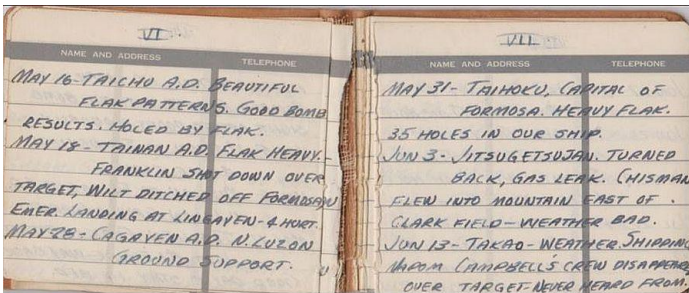 VI
NAME AND ADDRESS TELEPHONE
MAY 16 - TAICHU A.D. BEAUTIFUL
FLAK PATTERNS. GOOD BOMB
RESULTS. HOLED BY FLAK.
MAY 18 - TAINAN A.D. FLAK HEAVY.
FRANKLIN SHOT DOWN OVER
TARGET, WILT DITCHED OFF FORMOSA
EMER. LANDING AT LINGAYEN - 4 HURT.
MAY 28 - CAGAYEN A.D. N. LUZON
GROUND SUPPORT.
VII
NAME AND ADDRESS TELEPHONE
MAY 31 - TAIHOKU, CAPITAL OF
FORMOSA. HEAVY FLAK.
35 HOLES IN OUR SHIP.
JUN 3 - JITSUGETSUJAN. TURNED
BACK, GAS LEAK. CHISMAN
FLEW INTO MOUNTAIN EAST OF
CLARK FIELD - WEATHER BAD.
JUN 13 - TAKAO - WEATHER. SHIPPING
NAPOM CAMPBELL'S CREW DISAPPEARED
OVER TARGET - NEVER HEARD FROM.